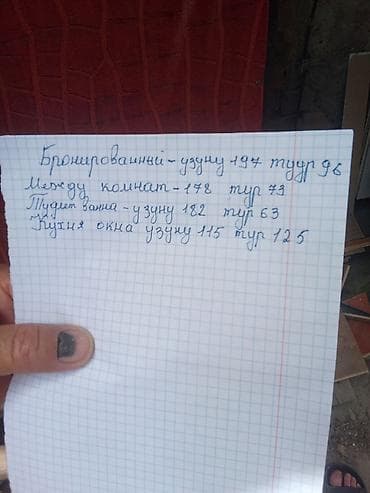 Бронированный - узуну 197 туур 96
Между комнат - 178 тур 73
Туалет ванна - узуну 182 тур 63
Кухня окна узуну 115 тур 125